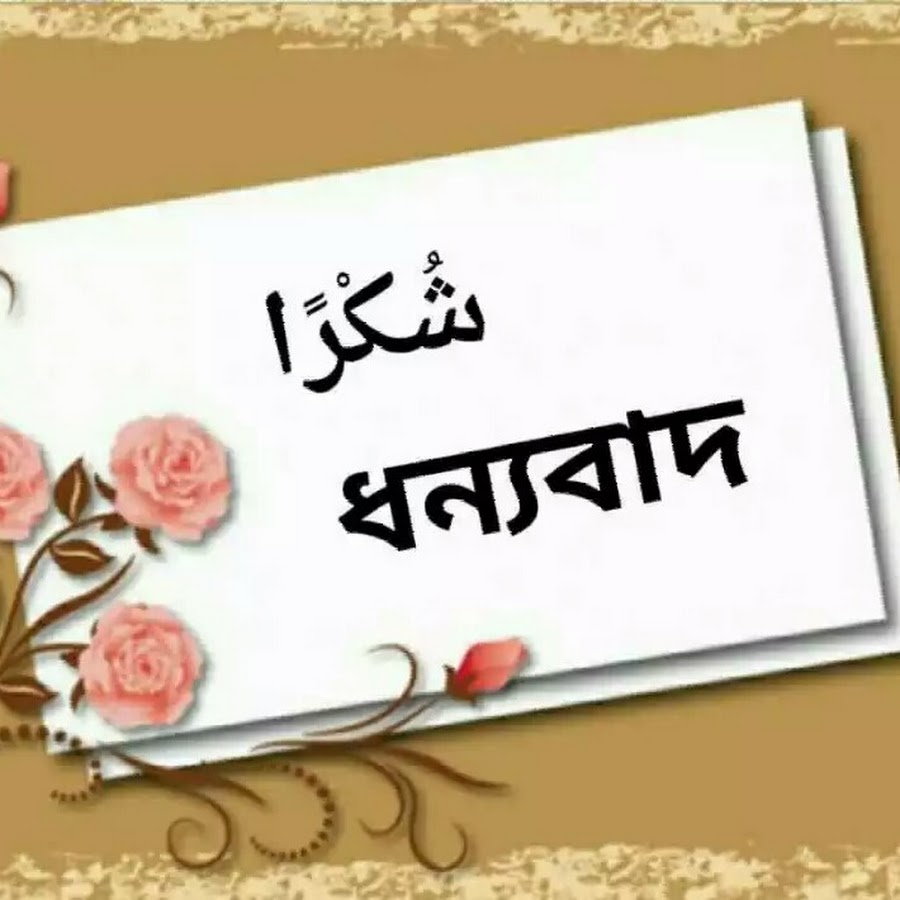 شُكْرًا
ধন্যবাদ